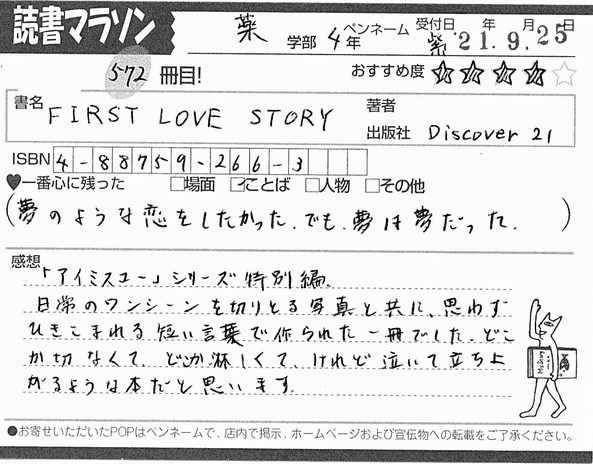 読書マラソン
薬 学部 4年 ペンネーム 紫 受付日. 年 月 日 '21.9.25
572 冊目! おすすめ度 ★★★★☆
書名 FIRST LOVE STORY 著者
出版社 Discover 21
ISBN 4-88759-266-3
♥一番心に残った □場面 ☑ことば □人物 □その他
(夢のような恋をしたかった、でも、夢は夢だった。)
感想
「アイミスユー」シリーズ特別編。
日常のワンシーンを切りとる写真と共に、思わず
ひきこまれる短い言葉で作られた一冊でした。どこ
か切なくて、どこか淋しくて、けれど泣いて立ち上
がるような本だと思います。
●お寄せいただいたPOPはペンネームで、店内で掲示、ホームページおよび宣伝物への転載をご了承ください。